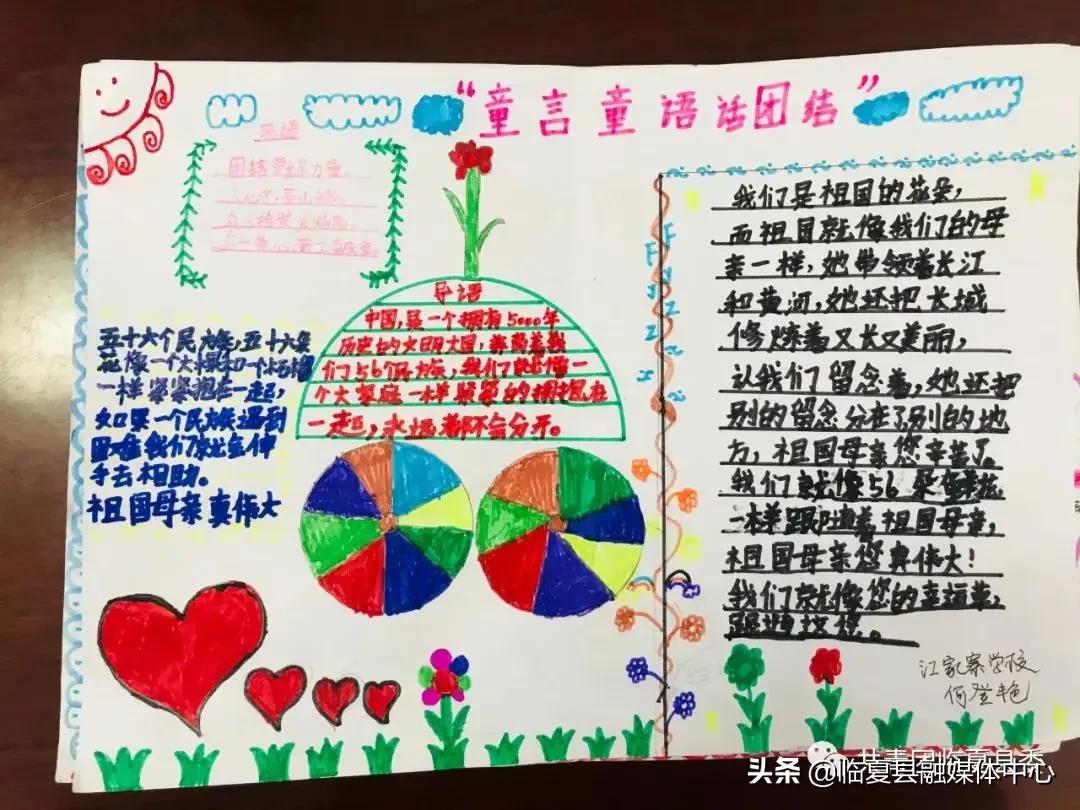 “童言童语话团结”
团结就是力量
导语
中国，是一个拥有5000年
历史的文明大国，
们56个民族，我们就像一
个大家庭一样紧紧的拥抱在
一起，永远都不会分开。
五十六个民族，五十六朵
花像一个大
一样紧紧抱在一起，
如果一个民族遇到
困难我们就会伸
手去相助。
祖国母亲真伟大
我们是祖国的花朵，
而祖国就像我们的母
亲一样，她带领着长江
和黄河，她还把长城
修炼着又长又美丽，
认我们留念着，她还把
别的留念分在了别的地
方，祖国母亲您辛苦了。
我们就像56朵
一样跟随着祖国母亲，
祖国母亲您真伟大！
我们就像您的幸运草，
江家寨学校
何登艳
共青团临夏县委
头条 @临夏县融媒体中心